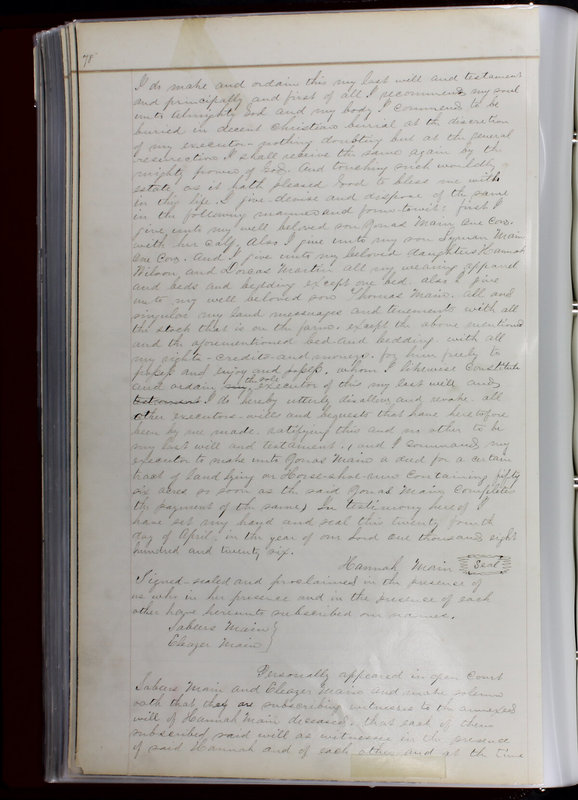 78
I do make and ordain this my last will and testament
and principally and first of all I recommend my soul
unto Almighty God and my body I commend to be
buried in decent Christian burial at the discretion
of my executor nothing doubting but at the general
resurrection I shall receive the same again by the
mighty power of God. And touching such worldly
estate as it hath pleased God to bless me with
in this life. I give devise and dispose of the same
in the following manner and form towit: first I
give unto my well beloved son Jonas Main One Cow
with her Calf, Also I give unto my son Lyman Main
One Cow. And I give unto my beloved daughters Hannah
Wilson and Martin all my wearing apparel
and beds and bedding except one bed. also I give
unto my well beloved son Thomas Main. all and
singular my land messuages and tenements with all
the stock that is on the farm. except the above mentioned
and the aforementioned bed and bedding. with all
my rights - credits - and moneys. for him freely to
possess and enjoy and possess. whom I likewise Constitute
and ordain my the sole executor of this my last will and
testament. I do hereby utterly disallow and revoke all
other executors - wills and bequests that have heretofore
been by me made. ratifying this and no other to be
my last will and testament., and I command my
executor to make unto Jonas Main a deed for a certain
tract of land lying on Horse-shoe-run Containing fifty
six acres so soon as the said Jonas Main Completes
the payment of the same, In testimony here of I
have set my hand and seal this twenty fourth
day of April, in the year of our Lord one thousand eight
hundred and twenty six.
Hannah Main Seal
Signed - sealed and proclaimed in the presence of
us who in her presence and in the presence of each
other have hereunto subscribed our names.
Sabeers Main
Eleazer Main
Personally appeared in open Court
Sabeers Main and Eleazer Main and make solemn
oath that they are subscribing witnesses to the annexed
will of Hannah Main deceased, that each of them
subscribed said will as witnesses in the presence
of said Hannah and of each other and at the time